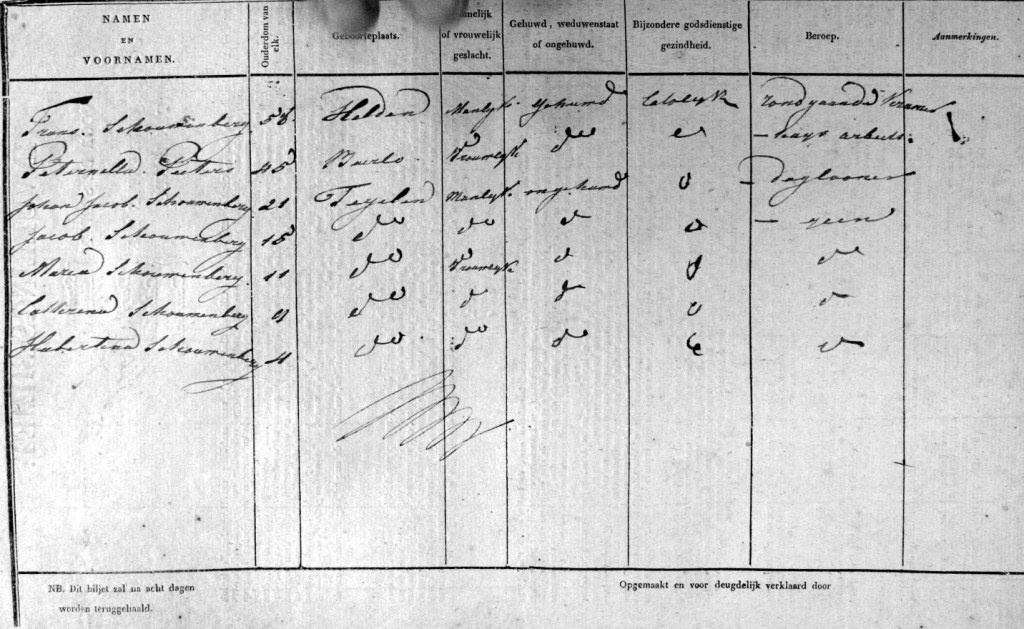 NAMEN EN VOORNAMEN. Ouderdom van elk. Geboorteplaats. nnelijk of vrouwelijk geslacht. Gehuwd, weduwenstaat of ongehuwd. Bijzondere godsdienstige gezindheid. Beroep. Aanmerkingen.
Frans. Schoumenberg 58 Helden Manlyk. gehuwd Catolyk rondgaande
Peternella Peeters 45 Baerlo Vrouwelyk do do – huys arbeit.
Johan Jacob Schoumenberg 21 Tegelen Manlyk. ongehuwd do – daglooner
Jacob Schoumenberg 15 do do do do – geen
Maria Schoumenberg 11 do Vrouwelyk do do do
Catterina Schoumenberg 9 do do do do do
Hubertina Schoumenberg 4 do do do do do
NB. Dit biljet zal na acht dagen Opgemaakt en voor deugdelijk verklaard door
worden teruggehaald.